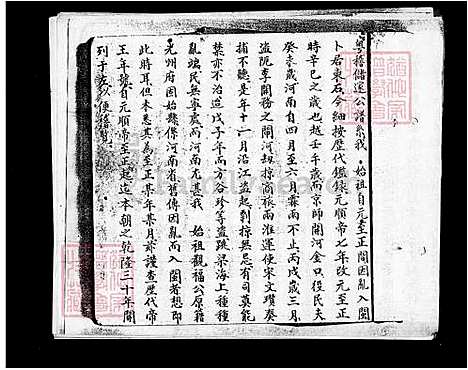 粤稽儲運公譜系我 始祖自元至正間因亂入閩
卜君東石今細按歷代鑑錄元順帝之年改元至正
時辛巳之歲也越壬午歲而京師開河金口役民夫
癸未歲河南自四月至六月霖雨不止丙戌歲三月
盜阨李開務之閘河刼掠商旅兩淮運使宋文瓚奏
捕不聽是年十一月沿江盜起剽掠無忌有司莫能
禁亦不治迨戊子年而方谷珍等盜跳梁海上種種
亂端民無寧處而河南尤甚我 始祖觀福公原籍
光州府固始縣係河南省舊傳因亂而入閩者想即
此時耳但未悉其為至正某年某月詐謹查歷代帝
王年號自元順帝至正起迄本朝之乾隆三十年間
列于左以便稽